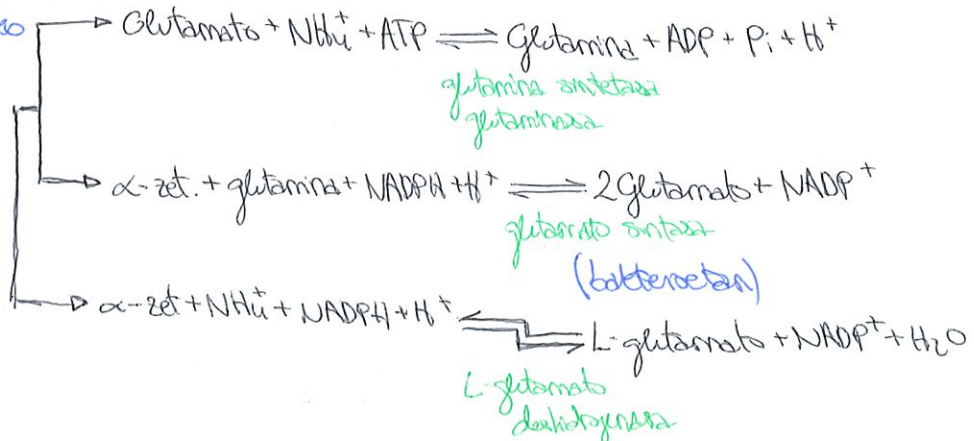 Glutamato + NH₄⁺ + ATP ⇌ Glutamina + ADP + Pi + H⁺
glutamina sintetasa
glutaminasa
α-zet. + glutamina + NADPH + H⁺ ⇌ 2 Glutamato + NADP⁺
glutamato sintasa
(bakterioetan)
α-zet + NH₄⁺ + NADPH + H⁺ ⇌ L-glutamato + NADP⁺ + H₂O
L-glutamato
deshidrogenasa